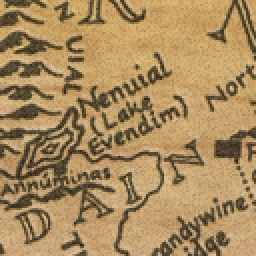 UIAL
Nenuial
(Lake
Evendim)
Nort
Annúminas
DAIN
randywine
idge